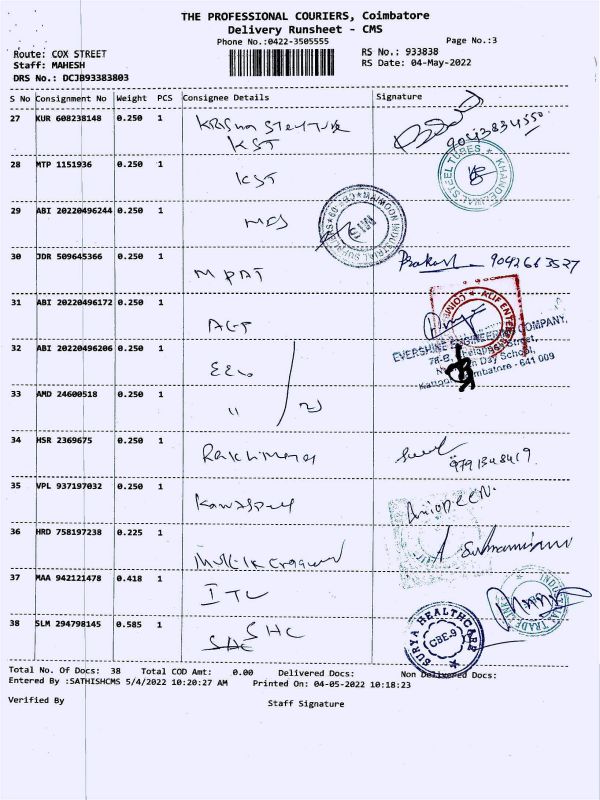 THE PROFESSIONAL COURIERS, Coimbatore
Delivery Runsheet - CMS
Phone No.:0422-3505555
Page No.:3
Route: COX STREET
RS No.: 933838
Staff: MAHESH
RS Date: 04-May-2022
DRS No.: DCJB93383803
S No Consignment No Weight PCS Consignee Details Signature
27 KUR 608238148 0.250 1
KST
28 MTP 1151936 0.250 1 KST
STEEL TUBES * KHANDELWAL
29 ABI 20220496244 0.250 1
MAIMOON INDUSTRIAL SUPPLIERS * CBE-09 *
MIS
30 JDR 509645366 0.250 1 MPAT Prakash 9042663527
31 ABI 20220496172 0.250 1 AET
ALIF ENTER
EVERSHINE ENGINEERING COMPANY,
Street,
Day School,
Coimbatore - 641 009
32 ABI 20220496206 0.250 1 EEC
33 AMD 24600518 0.250 1 "
34 HSR 2369675 0.250 1
35 VPL 937197032 0.250 1
36 HRD 758197238 0.225 1
37 MAA 942121478 0.418 1 ITC
TRADE
38 SLM 294798145 0.585 1 SHC
SURYA HEALTHCARE
CBE-9
Total No. Of Docs: 38 Total COD Amt: 0.00 Delivered Docs: Non Delivered Docs:
Entered By :SATHISHCMS 5/4/2022 10:20:27 AM Printed On: 04-05-2022 10:18:23
Verified By Staff Signature